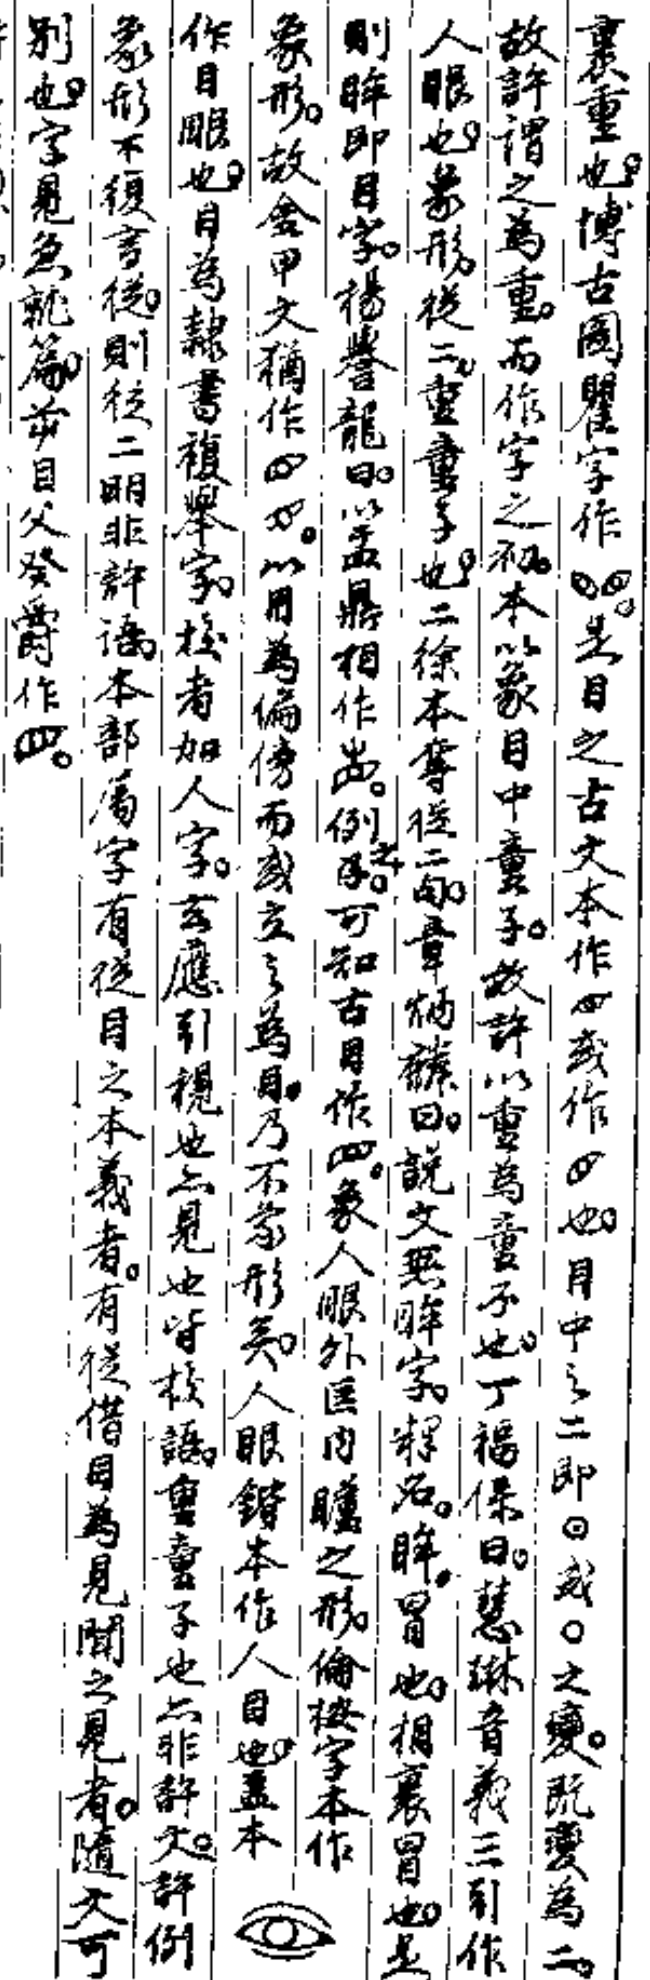 裏重也。博古圖瞿字作。是目之古文本作或作也。目中之二即⊙或○之變。既變為二。
故許謂之為重。而作字之初。本以象目中童子。故許以重為童子也。丁福保曰。慧琳音義三引作
人眼也。象形。從二。重童子也。二徐本奪從二句。章炳麟曰。說文無眸字。釋名。眸。冒也。相裹冒也。是
則眸即目字。楊譽龍曰。以盂鼎相作例之。可知古目作。象人眼外匡内矑之形。倫按字本作
象形。故金甲文猶作。以用為偏傍而或立之為目。乃不象形矣。人眼鍇本作人目也。蓋本
作目眼也。目為隸書複舉字。校者加人字。玄應引視也亦見也皆校語。重童子也亦非許文。許例
象形不復言從。則從二明非許語。本部屬字有從目之本義者。有從借目為見聞之見者。隨文可
別也。字見急就篇。目父癸爵作。